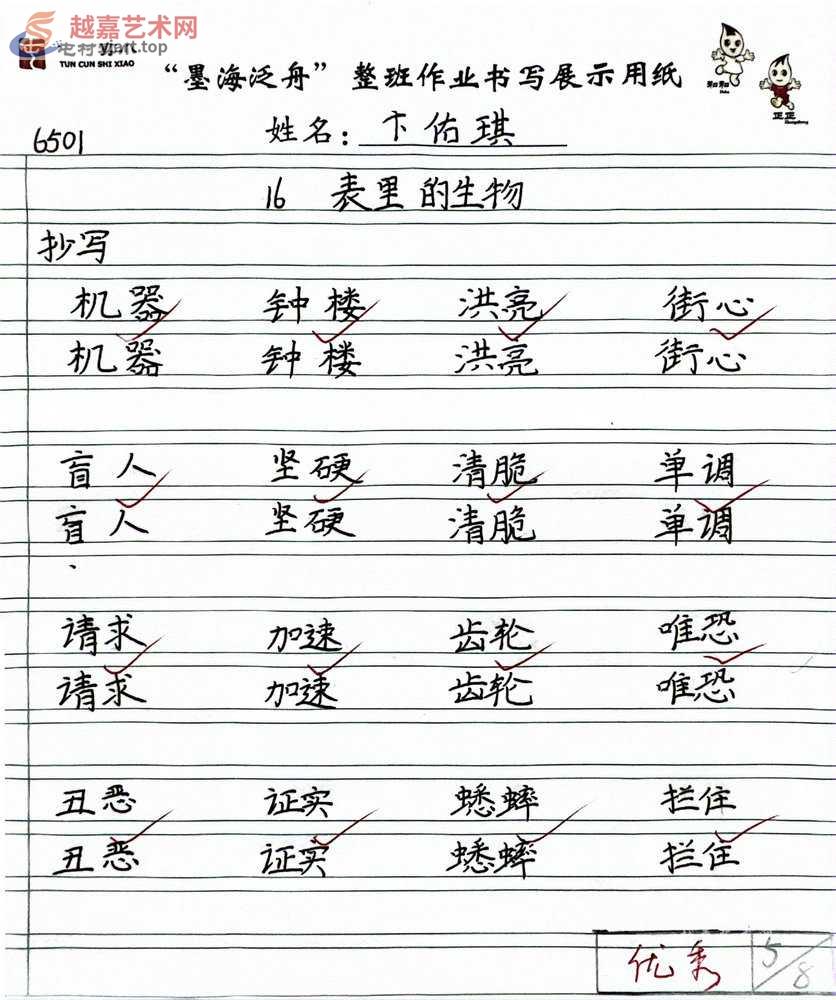 越嘉艺术网
yjart.top
TUN CUN SHI XIAO
“墨海泛舟”整班作业书写展示用纸
和和
正正
6501
姓名：卞佑琪
16 表里的生物
抄写
机器 钟楼 洪亮 街心
机器 钟楼 洪亮 街心
盲人 坚硬 清脆 单调
盲人 坚硬 清脆 单调
请求 加速 齿轮 唯恐
请求 加速 齿轮 唯恐
丑恶 证实 蟋蟀 拦住
丑恶 证实 蟋蟀 拦住
优秀 5/8